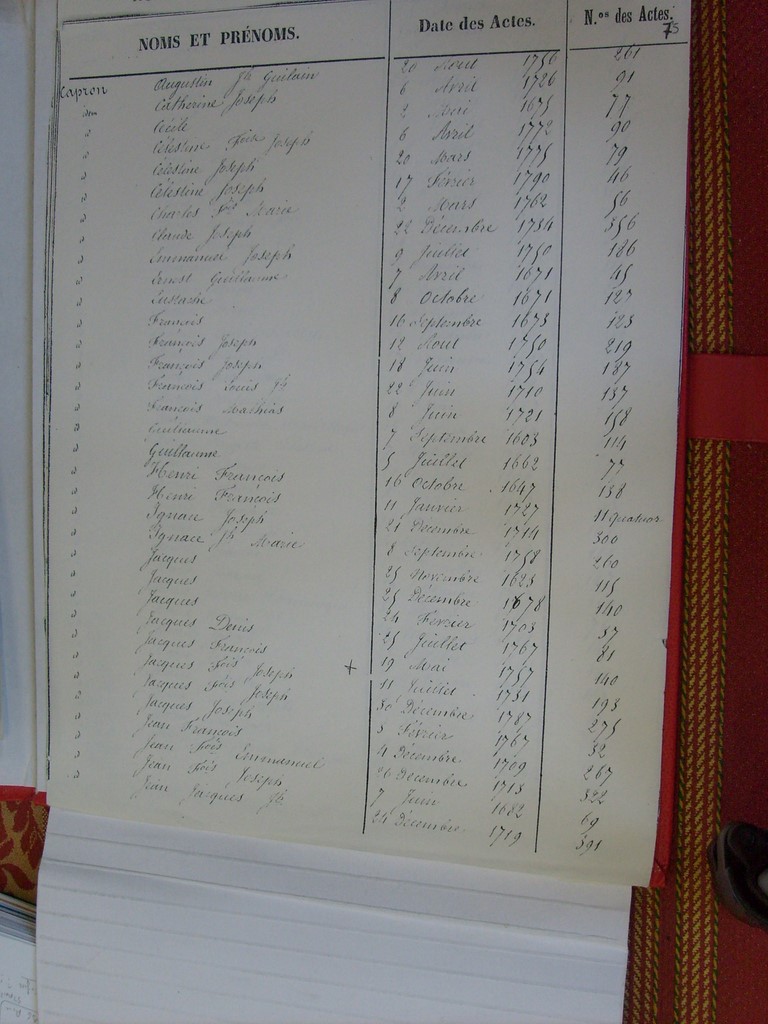 NOMS ET PRÉNOMS. Date des Actes. N.os des Actes.
75
Capron Augustin Jh Guilain 20 Aout 1756 261
idem Catherine Joseph 6 Avril 1786 91
d Cécile 2 Mai 1675 77
d Célestine Foise Joseph 6 Avril 1772 90
d Célestine Joseph 20 Mars 1775 79
d Célestine Joseph 17 Février 1790 46
d Charles Fois Marie 2 Mars 1762 56
d Claude Joseph 22 Décembre 1734 356
d Emmanuel Joseph 9 Juillet 1750 186
d Ernest Guillaume 7 Avril 1671 45
d Eustache 8 Octobre 1671 127
d François 16 Septembre 1673 123
d François Joseph 12 Aout 1750 219
d François Joseph 18 Juin 1754 187
d François Louis Jh 22 Juin 1710 137
d François Mathias 8 Juin 1721 158
d Guillaume 7 Septembre 1603 114
d Guillaume 5 Juillet 1662 77
d Henri François 16 Octobre 1647 138
d Henri François 11 Janvier 1727 11 quatuor
d Ignace Joseph 21 Decembre 1714 300
d Ignace Jh Marie 8 Septembre 1758 260
d Jacques 25 Novembre 1623 115
d Jacques 25 Décembre 1678 140
d Jacques 24 Février 1703 37
d Jacques Denis 25 Juillet 1767 81
d Jacques François + 19 Mai 1757 140
d Jacques Fois Joseph 11 Juillet 1731 193
d Jacques Fois Joseph 30 Décembre 1787 275
d Jacques Joseph 3 Février 1767 32
d Jean François 4 Décembre 1709 267
d Jean Fois Emmanuel 26 Décembre 1713 322
d Jean Fois Joseph 7 Juin 1682 69
d Jean Jacques Jh 24 Décembre 1719 391